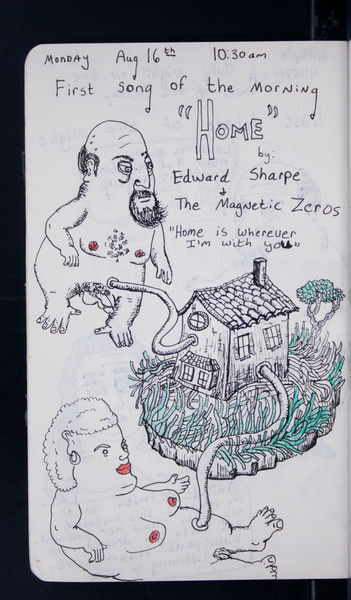 Monday Aug 16th 10:30am
First song of the morning
"HOME"
by:
Edward Sharpe
+
The Magnetic Zeros
"Home is wherever
I'm with you"